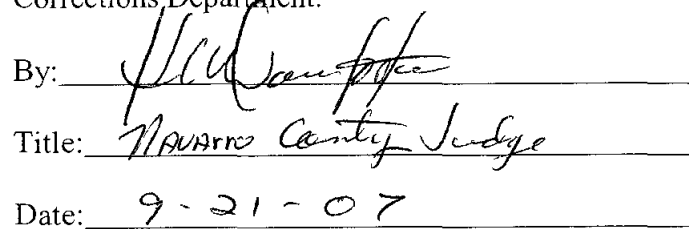 Corrections Department:
By:
Title: Navarro County Judge
Date: 9-21-07